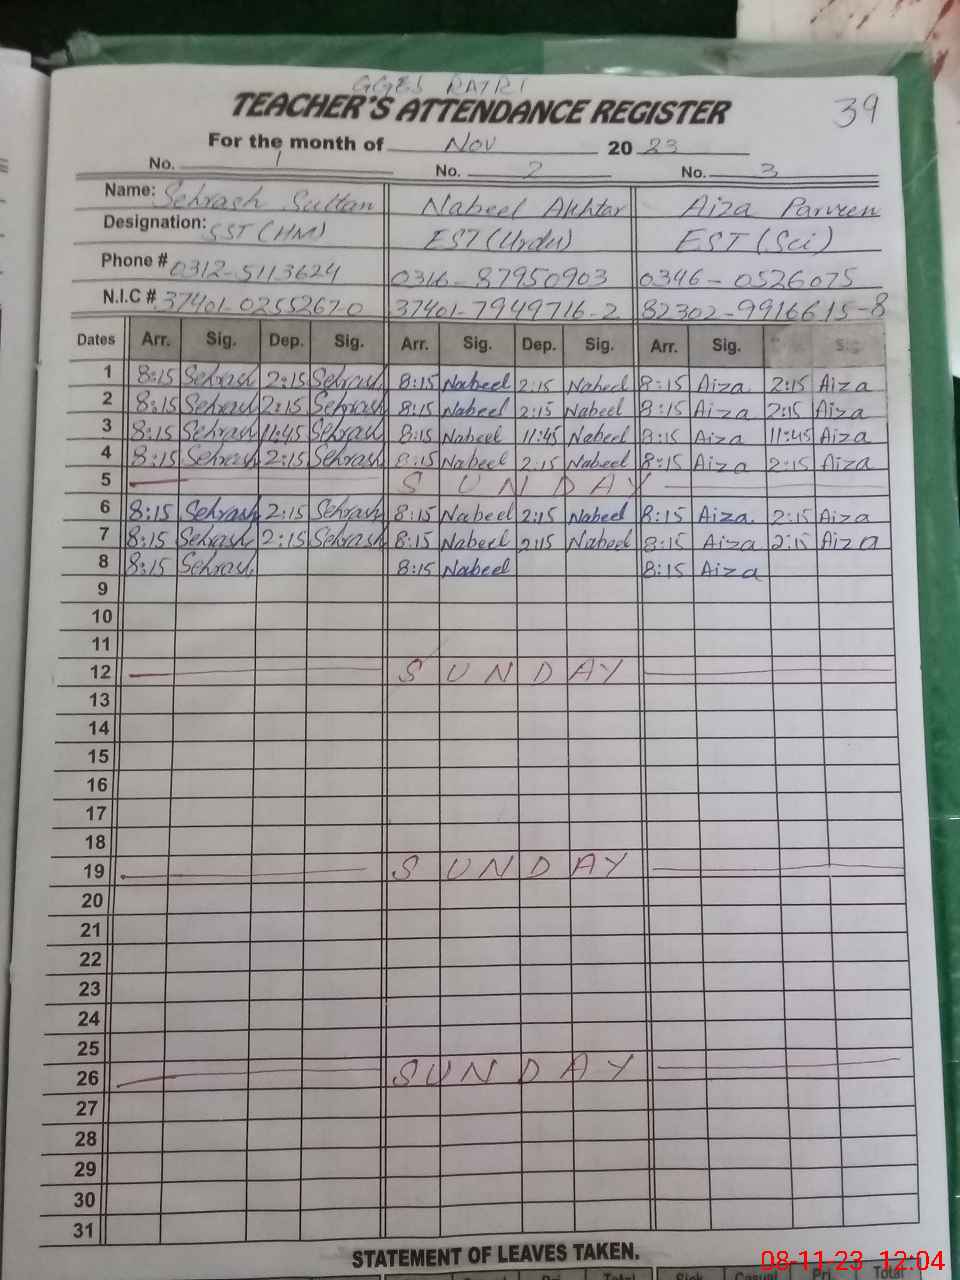 GGES RATRI
TEACHER'S ATTENDANCE REGISTER 39
For the month of Nov 20 23
No. 1 No. 2 No. 3
Name: Sehrash Sultan Nabeel Akhtar Aiza Parveen
Designation: SST (HM) EST (Urdu) EST (Sci)
Phone # 0312-5113624 0316-87950903 0346-0526075
N.I.C # 37401-0255267-0 37401-7949716-2 82302-9916615-8
Dates Arr. Sig. Dep. Sig. Arr. Sig. Dep. Sig. Arr. Sig. Sig.
1 8:15 Sehrash 2:15 Sehrash 8:15 Nabeel 2:15 Nabeel 8:15 Aiza 2:15 Aiza
2 8:15 Sehrash 2:15 Sehrash 8:15 Nabeel 2:15 Nabeel 8:15 Aiza 2:15 Aiza
3 8:15 Sehrash 11:45 Sehrash 8:15 Nabeel 11:45 Nabeel 8:15 Aiza 11:45 Aiza
4 8:15 Sehrash 2:15 Sehrash 8:15 Nabeel 2:15 Nabeel 8:15 Aiza 2:15 Aiza
5 SUNDAY
6 8:15 Sehrash 2:15 Sehrash 8:15 Nabeel 2:15 Nabeel 8:15 Aiza 2:15 Aiza
7 8:15 Sehrash 2:15 Sehrash 8:15 Nabeel 2:15 Nabeel 8:15 Aiza 2:15 Aiza
8 8:15 Sehrash 8:15 Nabeel 8:15 Aiza
9
10
11
12 SUNDAY
13
14
15
16
17
18
19 SUNDAY
20
21
22
23
24
25
26 SUNDAY
27
28
29
30
31
STATEMENT OF LEAVES TAKEN.
08-11-23 12:04
Total Sick Casual Pri Total